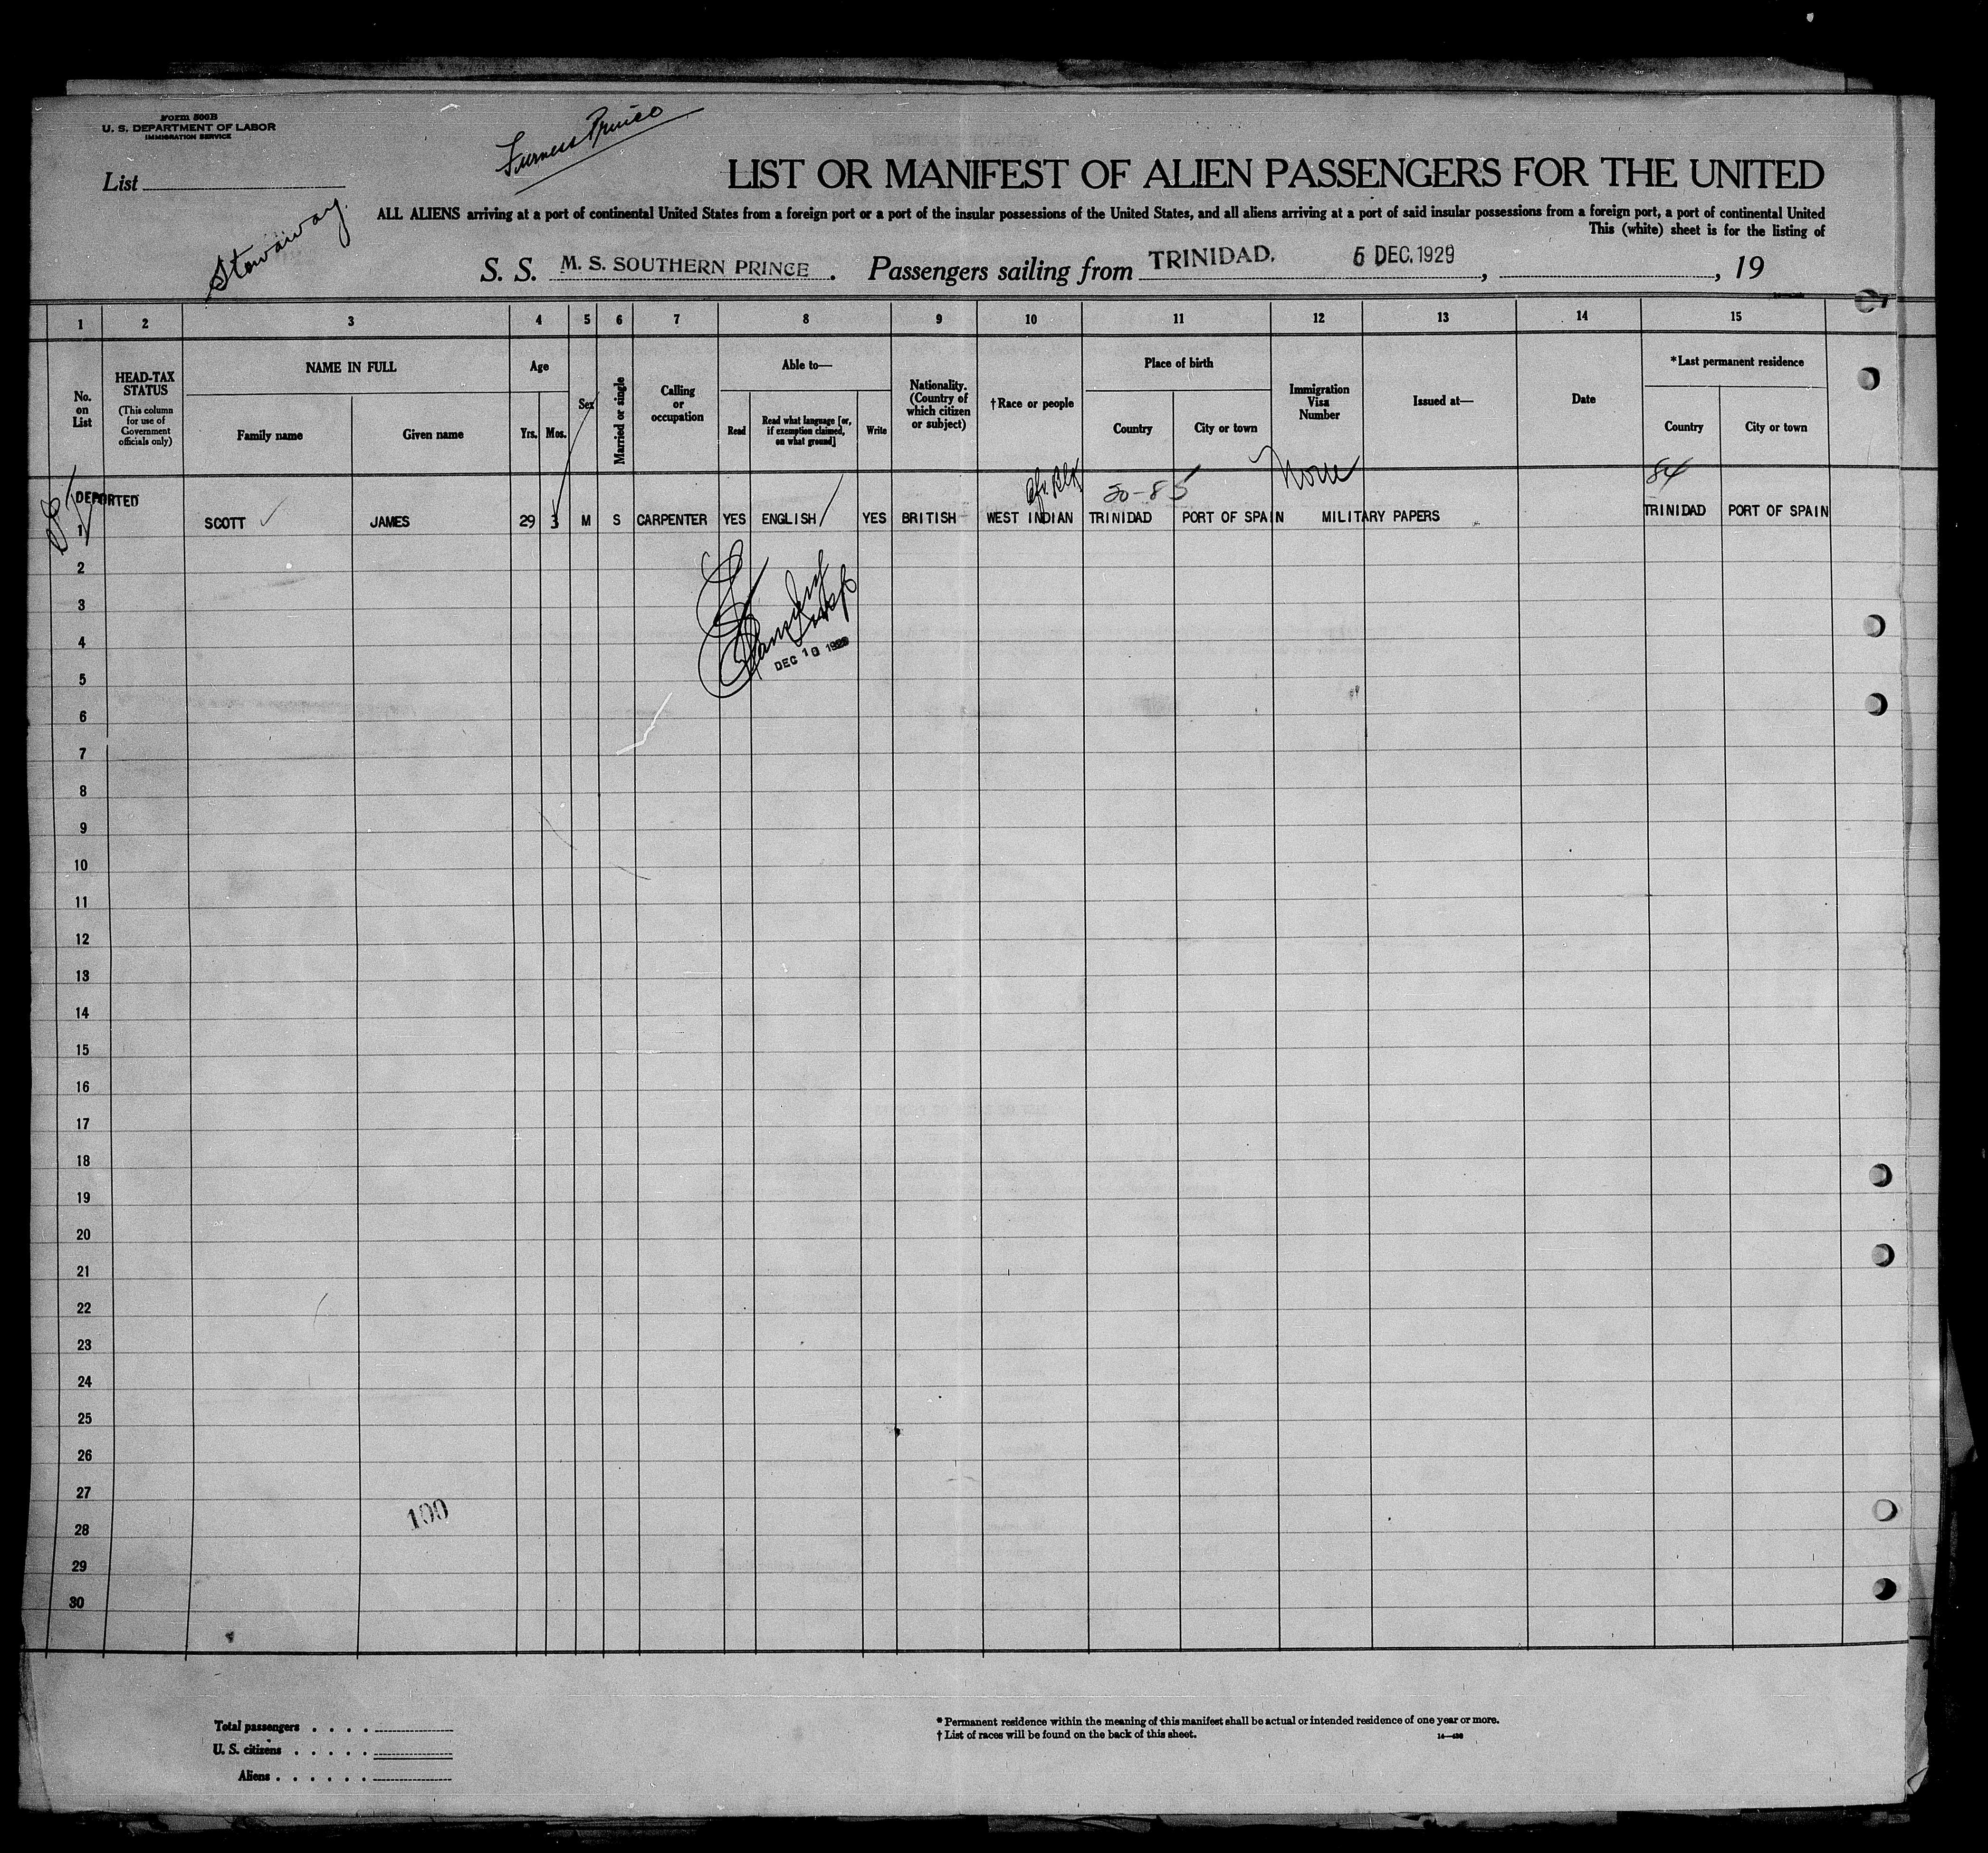 Form 500B
U. S. DEPARTMENT OF LABOR
IMMIGRATION SERVICE
Furness Prince
List
Stowaway.
LIST OR MANIFEST OF ALIEN PASSENGERS FOR THE UNITED
ALL ALIENS arriving at a port of continental United States from a foreign port or a port of the insular possessions of the United States, and all aliens arriving at a port of said insular possessions from a foreign port, a port of continental United
This (white) sheet is for the listing of
S. S. M. S. SOUTHERN PRINCE . Passengers sailing from TRINIDAD. 5 DEC. 1929 , , 19
1 2 3 4 5 6 7 8 9 10 11 12 13 14 15
No. on List
HEAD-TAX STATUS
(This column for use of Government officials only)
NAME IN FULL
Family name
Given name
Age
Yrs.
Mos.
Sex
Married or single
Calling or occupation
Able to—
Read
Read what language [or, if exemption claimed, on what ground]
Write
Nationality. (Country of which citizen or subject)
†Race or people
Place of birth
Country
City or town
Immigration Visa Number
Issued at—
Date
*Last permanent residence
Country
City or town
Afr. Blk
50-85
None
84
DEPORTED
1 SCOTT JAMES 29 3 M S CARPENTER YES ENGLISH YES BRITISH WEST INDIAN TRINIDAD PORT OF SPAIN MILITARY PAPERS TRINIDAD PORT OF SPAIN
2
3
4
DEC 18 1929
5
6
7
8
9
10
11
12
13
14
15
16
17
18
19
20
21
22
23
24
25
26
27
100
28
29
30
Total passengers . . . .
U. S. citizens . . . . .
Aliens . . . . . .
* Permanent residence within the meaning of this manifest shall be actual or intended residence of one year or more.
† List of races will be found on the back of this sheet.